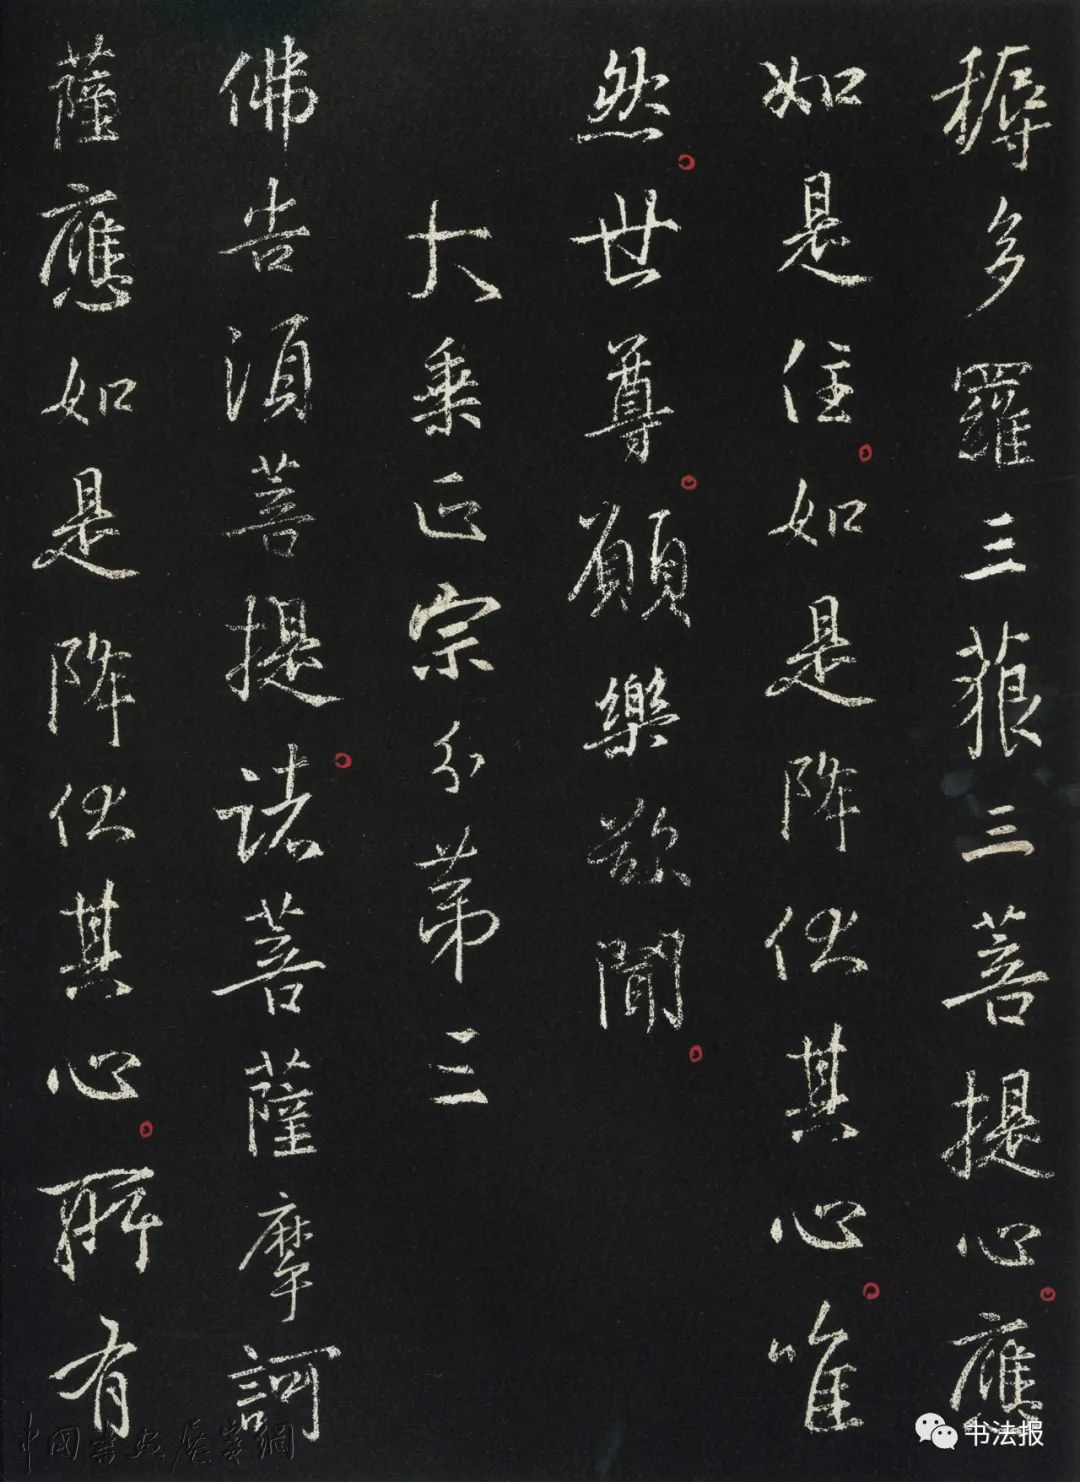 耨多羅三藐三菩提心應
如是住如是降伏其心唯
然世尊願樂欲聞
大乘正宗分第三
佛告須菩提諸菩薩摩訶
薩應如是降伏其心所有
书法报